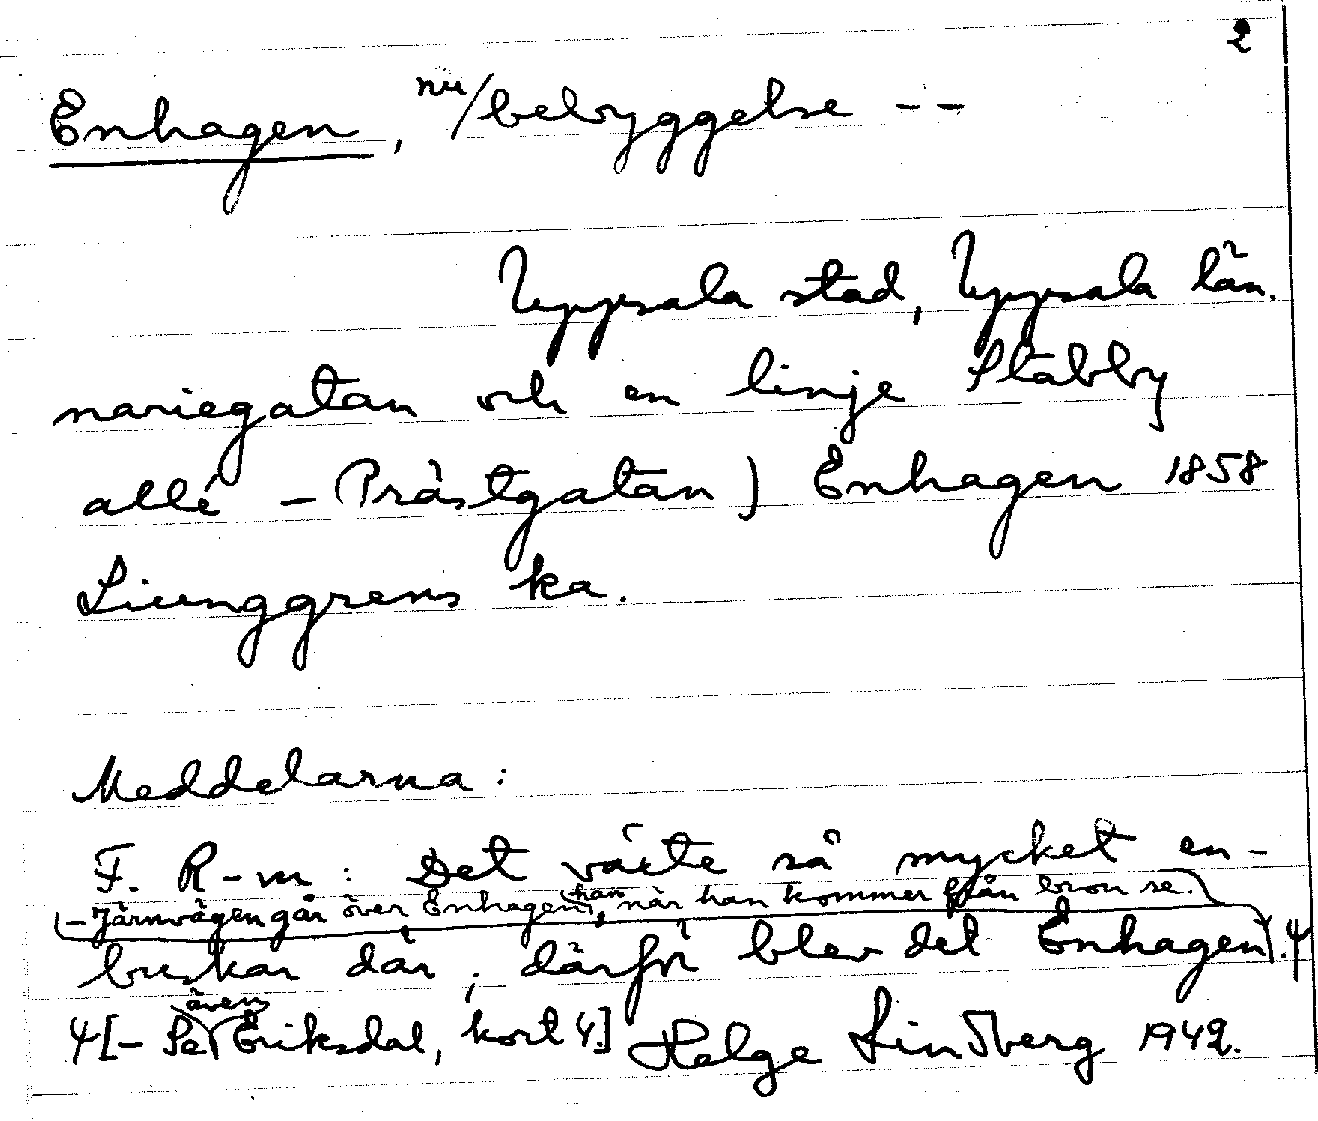 2
Enhagen, nu/bebyggelse --
Uppsala stad, Uppsala län.
nariegatan och en linje Stabby
allé - Prästgatan) Enhagen 1858
Liunggrens ka.
Meddelarna:
F. R-m: Det växte så mycket en-
- Järnvägen går över Enhagen, han, när han kommer från bron se.
buskar där, därför blev det Enhagen.
[- Se även Eriksdal, kort 4.] Helge Lindberg 1942.